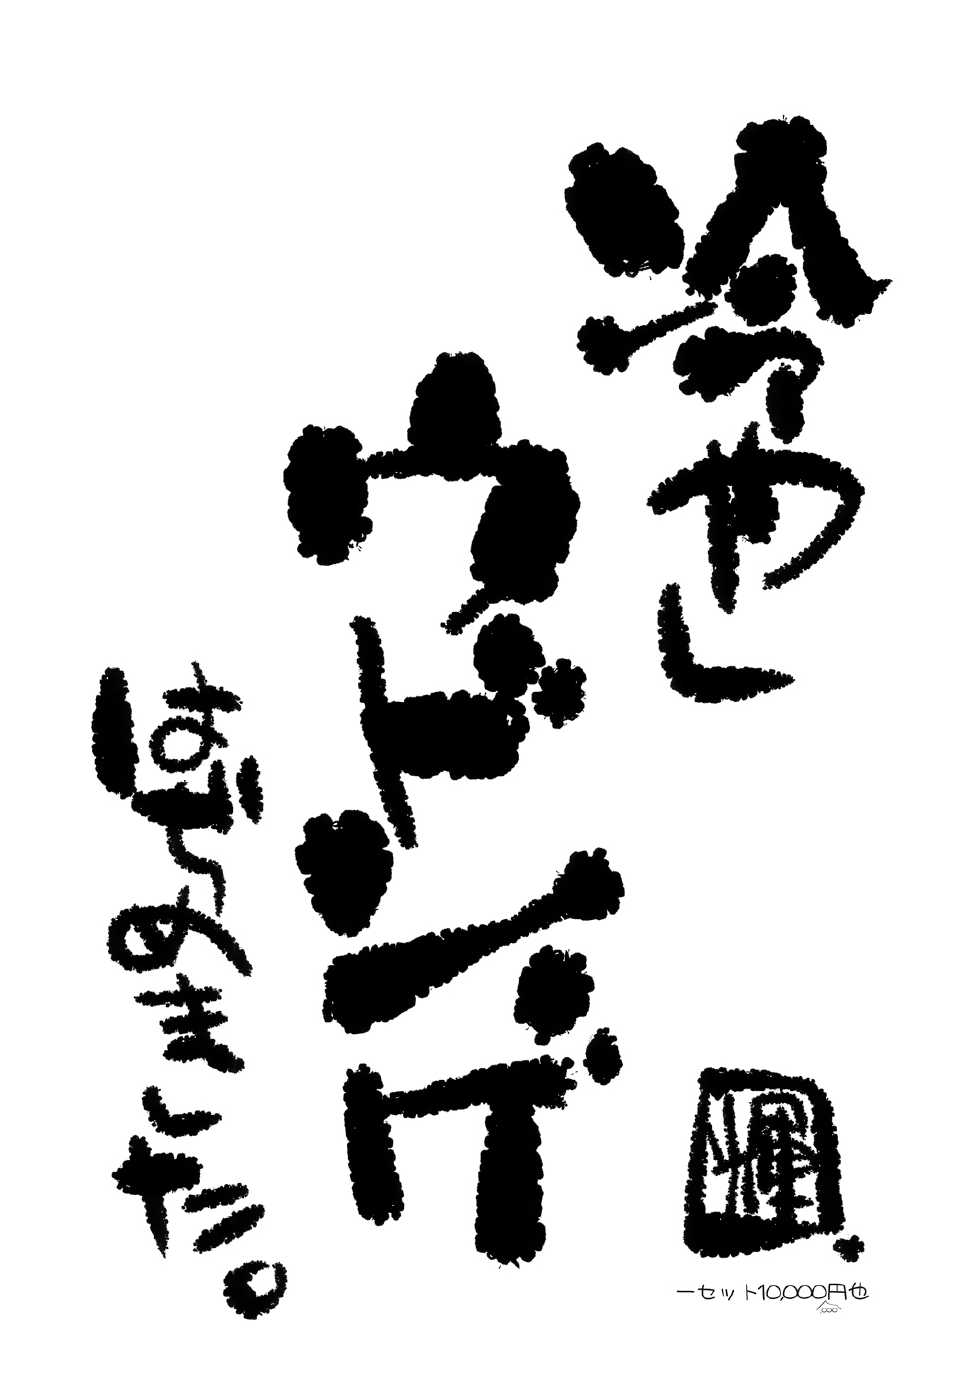 冷やし
ウドンゲ
はぢめました。
輝
一セット10,000円也